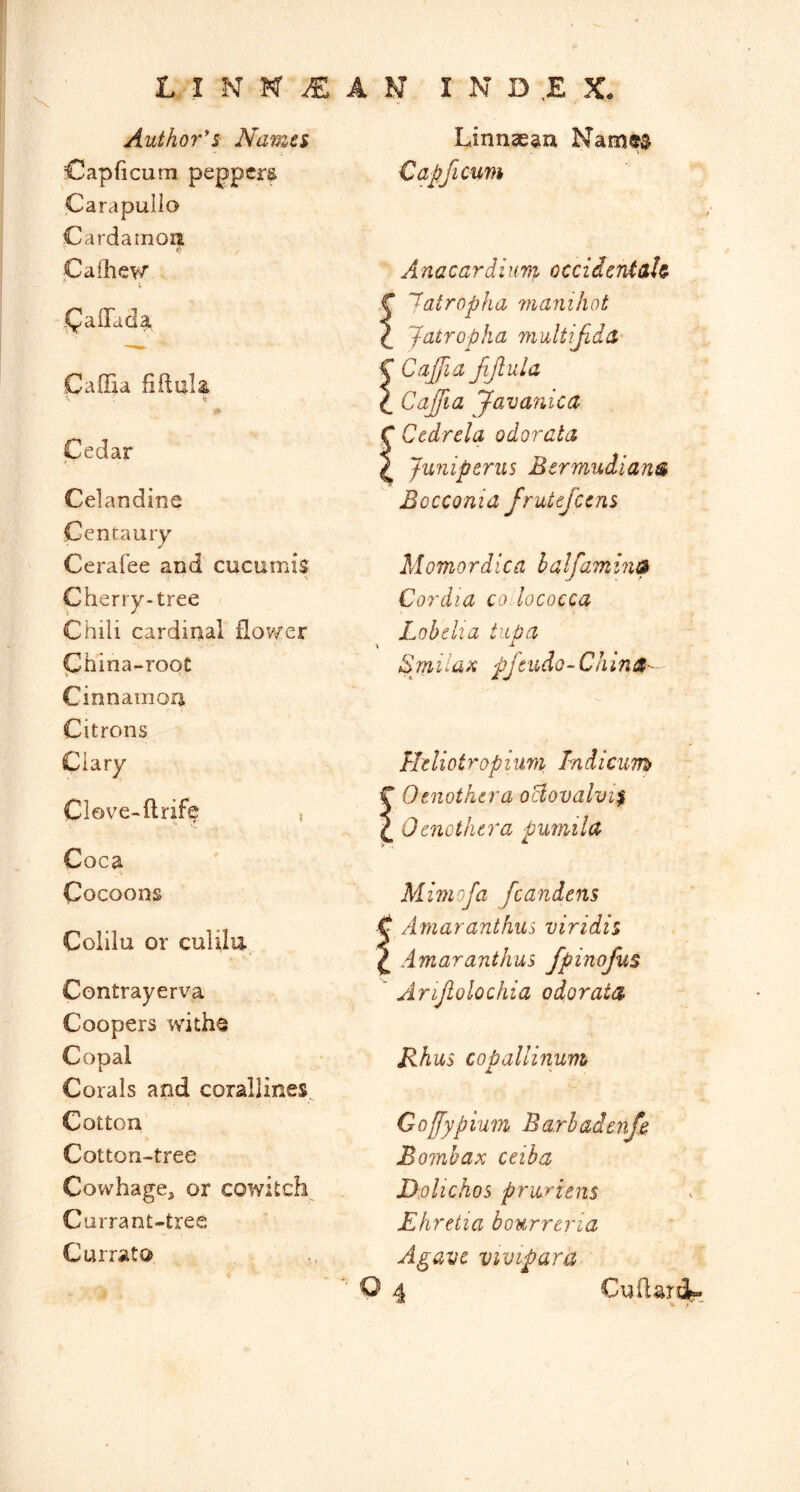 LINNÆAN INDEX.
Author's Names Linnæan Names
Capſicum peppers Capſicum
Carapullo
Cardamon
Caſhew Anacardium occidentale
Caſſada { Jatropha manihot
{ Jatropha multifida
Caſſia fiſtula { Caſſia fiſtula
{ Caſſia Javanica
Cedar { Cedrela odorata
{ Juniperus Bermudiana
Celandine Bocconia fruteſcens
Centaury
Ceraſee and cucumis Momordica balſamina
Cherry-tree Cordia collococca
Chili cardinal flower Lobelia tupa
China-root Smilax pſeudo-China
Cinnamon
Citrons
Clary Heliotropium Indicum
Clove-ſtrife { Oenothera octovalvis
{ Oenothera pumila
Coca
Cocoons Mimoſa ſcandens
Colilu or culilu { Amaranthus viridis
{ Amaranthus ſpinoſus
Contrayerva Ariſtolochia odorata
Coopers withs
Copal Rhus copallinum
Corals and corallines
Cotton Goſſypium Barbadenſe
Cotton-tree Bombax ceiba
Cowhage, or cowitch Dolichos pruriens
Currant-tree Ehretia bourreria
Currato Agave vivipara
O 4 Cuſtard-